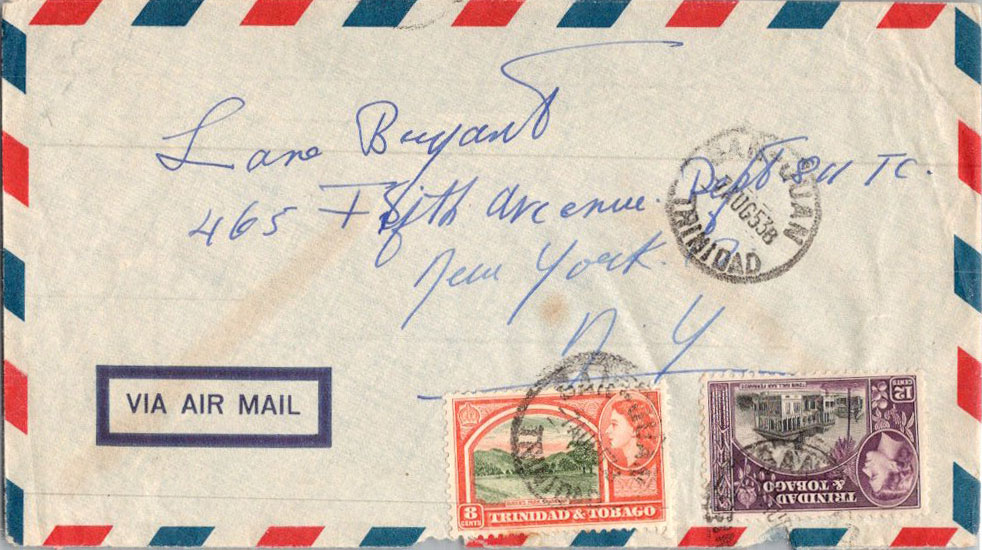 Lane Bryant
465 Fifth Avenue. Dept 811 TC.
New York.
N Y
SAN JUAN
AUG 53B
TRINIDAD
VIA AIR MAIL
8 CENTS
TRINIDAD & TOBAGO
12 CENTS
TOWN HALL SAN FERNANDO
TRINIDAD & TOBAGO